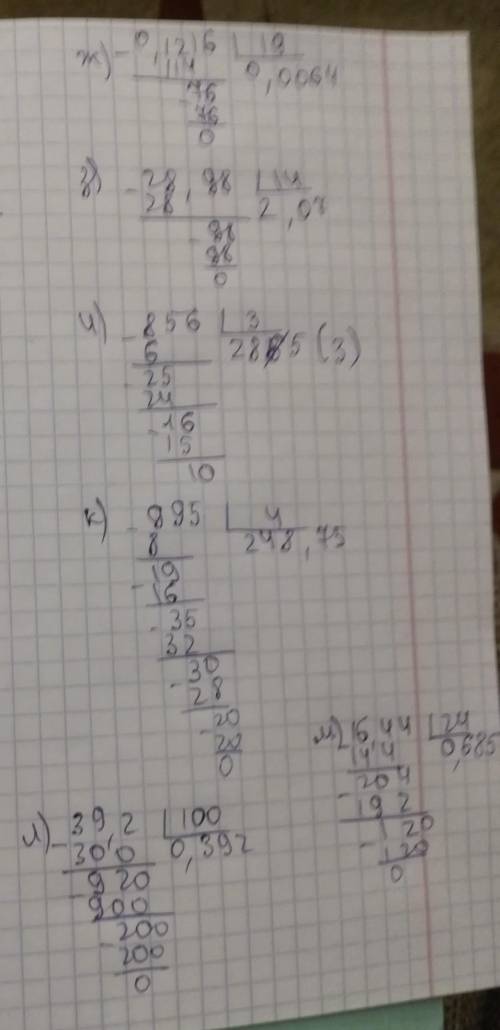 ж) 0,1216 19
114 0,0064
76
76
0
з) 28,98 14
28 2,07
98
98
0
и) 856 3
6 285(3)
25
24
16
15
10
к) 895 4
8 248,75
19
16
35
32
30
28
20
20
0
м) 16,44 24
144 0,685
204
192
120
120
0
л) 39,2 100
300 0,392
920
900
200
200
0